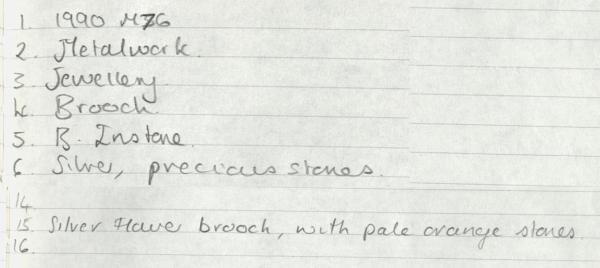 1. 1990 M76
2. Metalwork.
3. Jewellery
4. Brooch.
5. B. Instone.
6. Silver, precious stones.
14.
15. Silver brooch, with pale orange stones.
16.